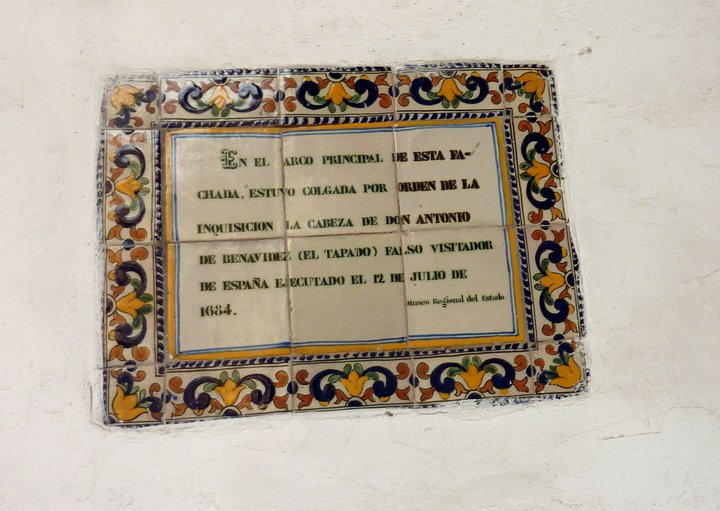 EN EL ARCO PRINCIPAL DE ESTA FA-
CHADA, ESTUVO COLGADA POR ORDEN DE LA
INQUISICION LA CABEZA DE DON ANTONIO
DE BENAVIDEZ (EL TAPADO) FALSO VISITADOR
DE ESPAÑA EJECUTADO EL 12 DE JULIO DE
1684.
Museo Regional del Estado.